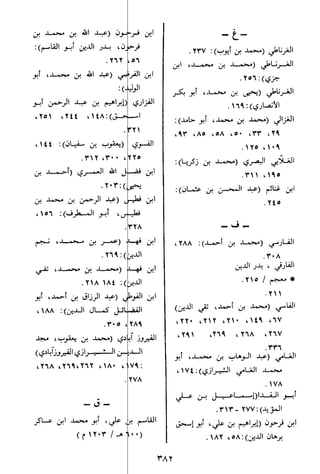 - غ -
الغرناطي (محمد بن أيوب): ٢٣٧.
الغـرنـاطي (محمـد بن محمـد، ابن
جزي): ٢٥٦.
الغرنـاطي (يحيى بن محمـد، أبو بكـر
الأنصاري): ١٦٩.
الغزالي (محمد بن محمد، أبو حامد):
٢٩، ٣٣، ٥٠، ٥٨، ٨٥، ٩٣،
١٠٩، ١٢٥.
الغلابي البصري (محمد بن زكريا):
١٩٥، ٣١١.
ابن غانم (عبد الرحمن بن عثمان):
٢٤٥.
- ف -
الفـارسي (محمـد بن أحمـد): ٢٨٨،
٣٠٨.
الفارقي، بدر الدين
* معجم / ٢١٥،
٢١١.
الفاسي (محمد بن أحمد، تقي الدين)
٦٧، ١٤٩، ٢١٠، ٢١٢، ٢٢٠،
٢٦٧، ٢٦٨، ٢٦٩، ٢٩١،
٣٣٦.
الفـامي (عبد الـوهاب بن محمد، أبو
محمد الفـامي الشيرازي): ١٧٤،
١٧٨.
أبـو الفـدا (إسمـاعيـل بـن عـلي
المؤيد): ٢٧٧ - ٣١٣.
ابن فرحون (إبراهيم بن علي، أبو إسحق
برهان الدين): ٥٨، ١٨٢.
ابن فرحـون (عبد الله بن محمـد بن
فرحون، بدر الدين أبـو القاسم):
٥٦، ٢٦٢.
ابن الفرضي (عبد الله بن محمد، أبو
الوليد):
الفزاري (إبراهيم بن عبد الرحمن أبو
إسحـق): ١٤٨، ٢٤٤، ٢٥١،
٣٢١.
الفسـوي (يعقوب بن سفيـان): ١٤٤،
٢٢٥، ٣٠٠، ٣١٢.
ابن فضـل الله العمـري (أحمـد بن
يحيى): ٢٠٣.
ابن فطيس (عبد الرحمن بن محمد بن
فطيس، أبـو المـطرف): ١٥٦،
٣٢٨.
ابن فهـد (عمـر بن محمـد، نجـم
الدين): ٢٦٩.
ابن فهـد (محمـد بن محمـد، تقي
الدين): ١٨٤، ٢١٨
ابن الفوطي (عبد الرزاق بن أحمد، أبو
الفضـائـل كمـال الـدين): ١٨٨،
٢٨٩، ٣٠٥.
الفيروز آبادي (محمد بن يعقوب، مجد
الـديـن الشيـرازي الفيروزآبادي)
١٧٩، ١٨٠، ٢٦٢، ٢٦٩، ٢٦٨،
٢٧٨.
- ق -
القاسم بن علي، أبو محمد ابن عساكر
(٦٠٠ هـ / ١٢٠٣ م)
٣٨٢